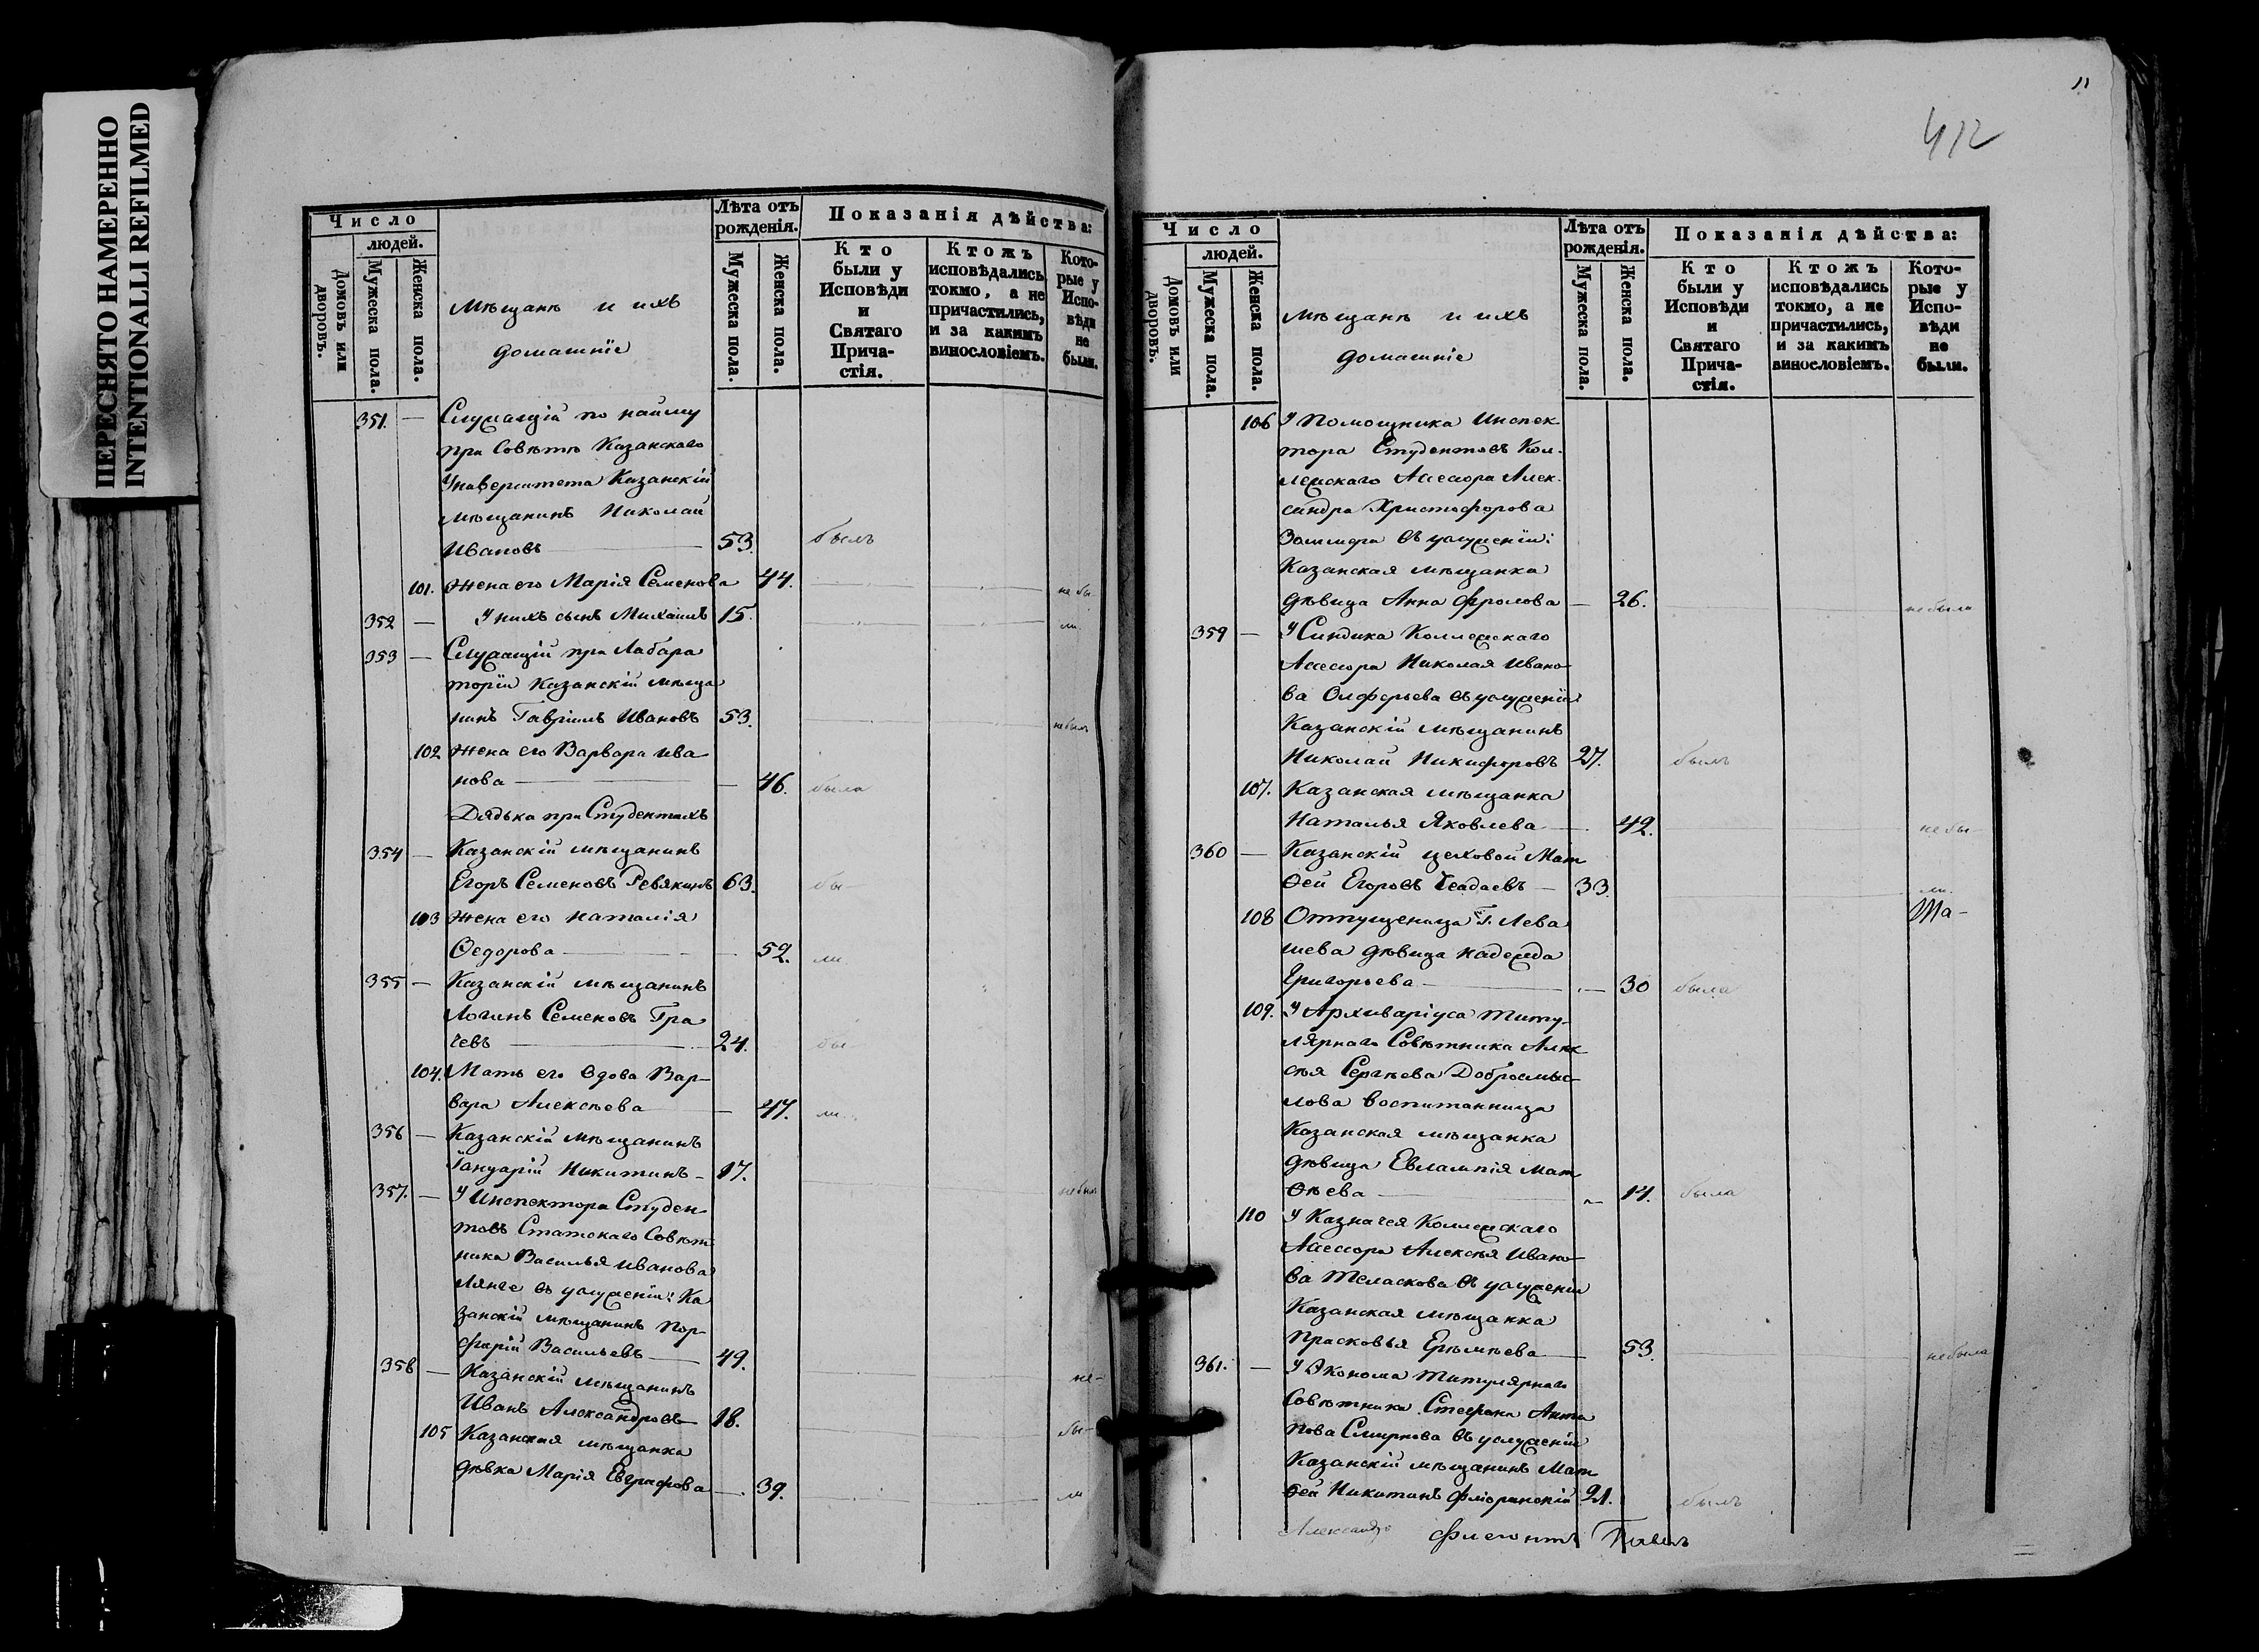 ПЕРЕСНЯТО НАМЕРЕННО
INTENTIONALLI REFILMED
Число
людей.
Домовъ или дворовъ.
Мужеска пола.
Женска пола.
Мѣщанѣ и ихъ
домашнїе
Лѣта отъ рожденія.
Мужеска пола.
Женска пола.
Показанія дѣйства:
Кто были у Исповѣди и Святаго Прича-стія.
Ктожъ исповѣдались токмо, а не причастились, и за какимъ винословіемъ.
Кото-рые у Испо-вѣди не были.
351. — Служащій по найму
при Совѣтѣ Казанскаго
Университета Казанскій
мѣщанинъ Николай
Ивановъ 53. былъ
101. Жена его Марія Семенова 44. не бы-
352 — У нихъ сынъ Михаилъ 15. ли.
353 — Служащій при Лабара
торіи Казанскій мѣща
нинъ Гавріилъ Ивановъ 53. небылъ
102 Жена его Варвара Ива
нова — 46. была
Дядька при Студентахъ
354 — Казанскій мѣщанинъ
Егоръ Семеновъ Ревякинъ 63. бы-
103 Жена его Наталія
Ѳедорова — 52. ли.
355 — Казанскій мѣщанинъ
Логинъ Семеновъ Гра
чевъ 24. бы-
104. Мать его вдова Вар-
вара Алексѣева — 47. ли.
356 — Казанскій мѣщанинъ
Іануарій Никитинъ 17. небылъ
357. — У Инспектора Студен
товъ Статскаго Совѣт
ника Василья Иванова
Лянге въ услуженіи: Ка
занскій мѣщанинъ Пор-
фирій Васильевъ 49. не-
358 — Казанскій мѣщанинъ
Иванъ Александровъ 18. бы-
105 Казанская мѣщанка
дѣвка Марія Евграфова — 39. ли
11
412
Число
людей.
Домовъ или дворовъ.
Мужеска пола.
Женска пола.
Мѣщанѣ и ихъ
домашніе
Лѣта отъ рожденія.
Мужеска пола.
Женска пола.
Показанія дѣйства:
Кто были у Исповѣди и Святаго Прича-стія.
Ктожъ исповѣдались токмо, а не причастились, и за какимъ винословіемъ.
Кото-рые у Испо-вѣди не были.
106 У Помощника Инспек
тора Студентовъ Кол-
лежскаго Ассесора Алек-
сандра Христофорова
въ услуженіи:
Казанская мѣщанка
дѣвица Анна Фролова — 26. небыла
359 — У Синдика Коллежскаго
Ассесора Николая Ивано
ва Олферьева въ услуженіи
Казанскій мѣщанинъ
Николай Никифоровъ 27. былъ
107. Казанская мѣщанка
Наталья Яковлева — 42. не бы-
360 — Казанскій цеховой Мат
ѳей Егоровъ 33. ли.
108 Отпущеница Г. Лева
шева дѣвица Надежда
Григорьева — 30 была
109. У Архиваріуса Титу-
лярнаго Совѣтника Алек
сѣя Сергѣева Добросмыс-
лова воспитанница
Казанская мѣщанка
дѣвица Евлампія Мат
ѳѣева 14. была
110 У Казначея Коллежскаго
Ассесора Алексѣя Ивано
ва въ услуженіи
Казанская мѣщанка
Прасковья Еремѣева 53. небыла
361. — У Эконома Титулярнаго
Совѣтника Стефана Анти
пова Смирнова въ услуженіи
Казанскій мѣщанинъ Мат
ѳей Никитинъ Флоринскій 21. былъ
Александръ Флегонтъ Павелъ